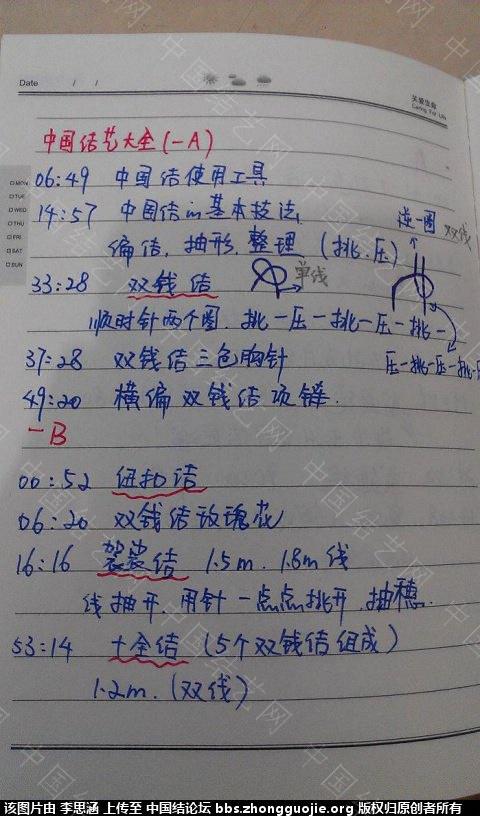 Date / /
关爱生命
Caring For Life
中国结艺大全(一A)
06:49 中国结使用工具
14:57 中国结的基本技法
编结、抽形、整理(挑、压)
逆一圈 双线
33:28 双钱结 单线
顺时针两个圈、挑一压一挑一压一挑一
压一挑一压一挑一
37:28 双钱结三色胸针
49:20 横编双钱结项链.
一B
00:52 纽扣结
06:20 双钱结玫瑰花
16:16 袈裟结 1.5m、1.8m线
线抽开、用针一点点挑开、抽穗.
53:14 十全结(5个双钱结组成)
1.2m.(双线)
MON
TUE
WED
THU
FRI
SAT
SUN
中国结艺网
该图片由 李思涵 上传至 中国结论坛 bbs.zhongguojie.org 版权归原创者所有